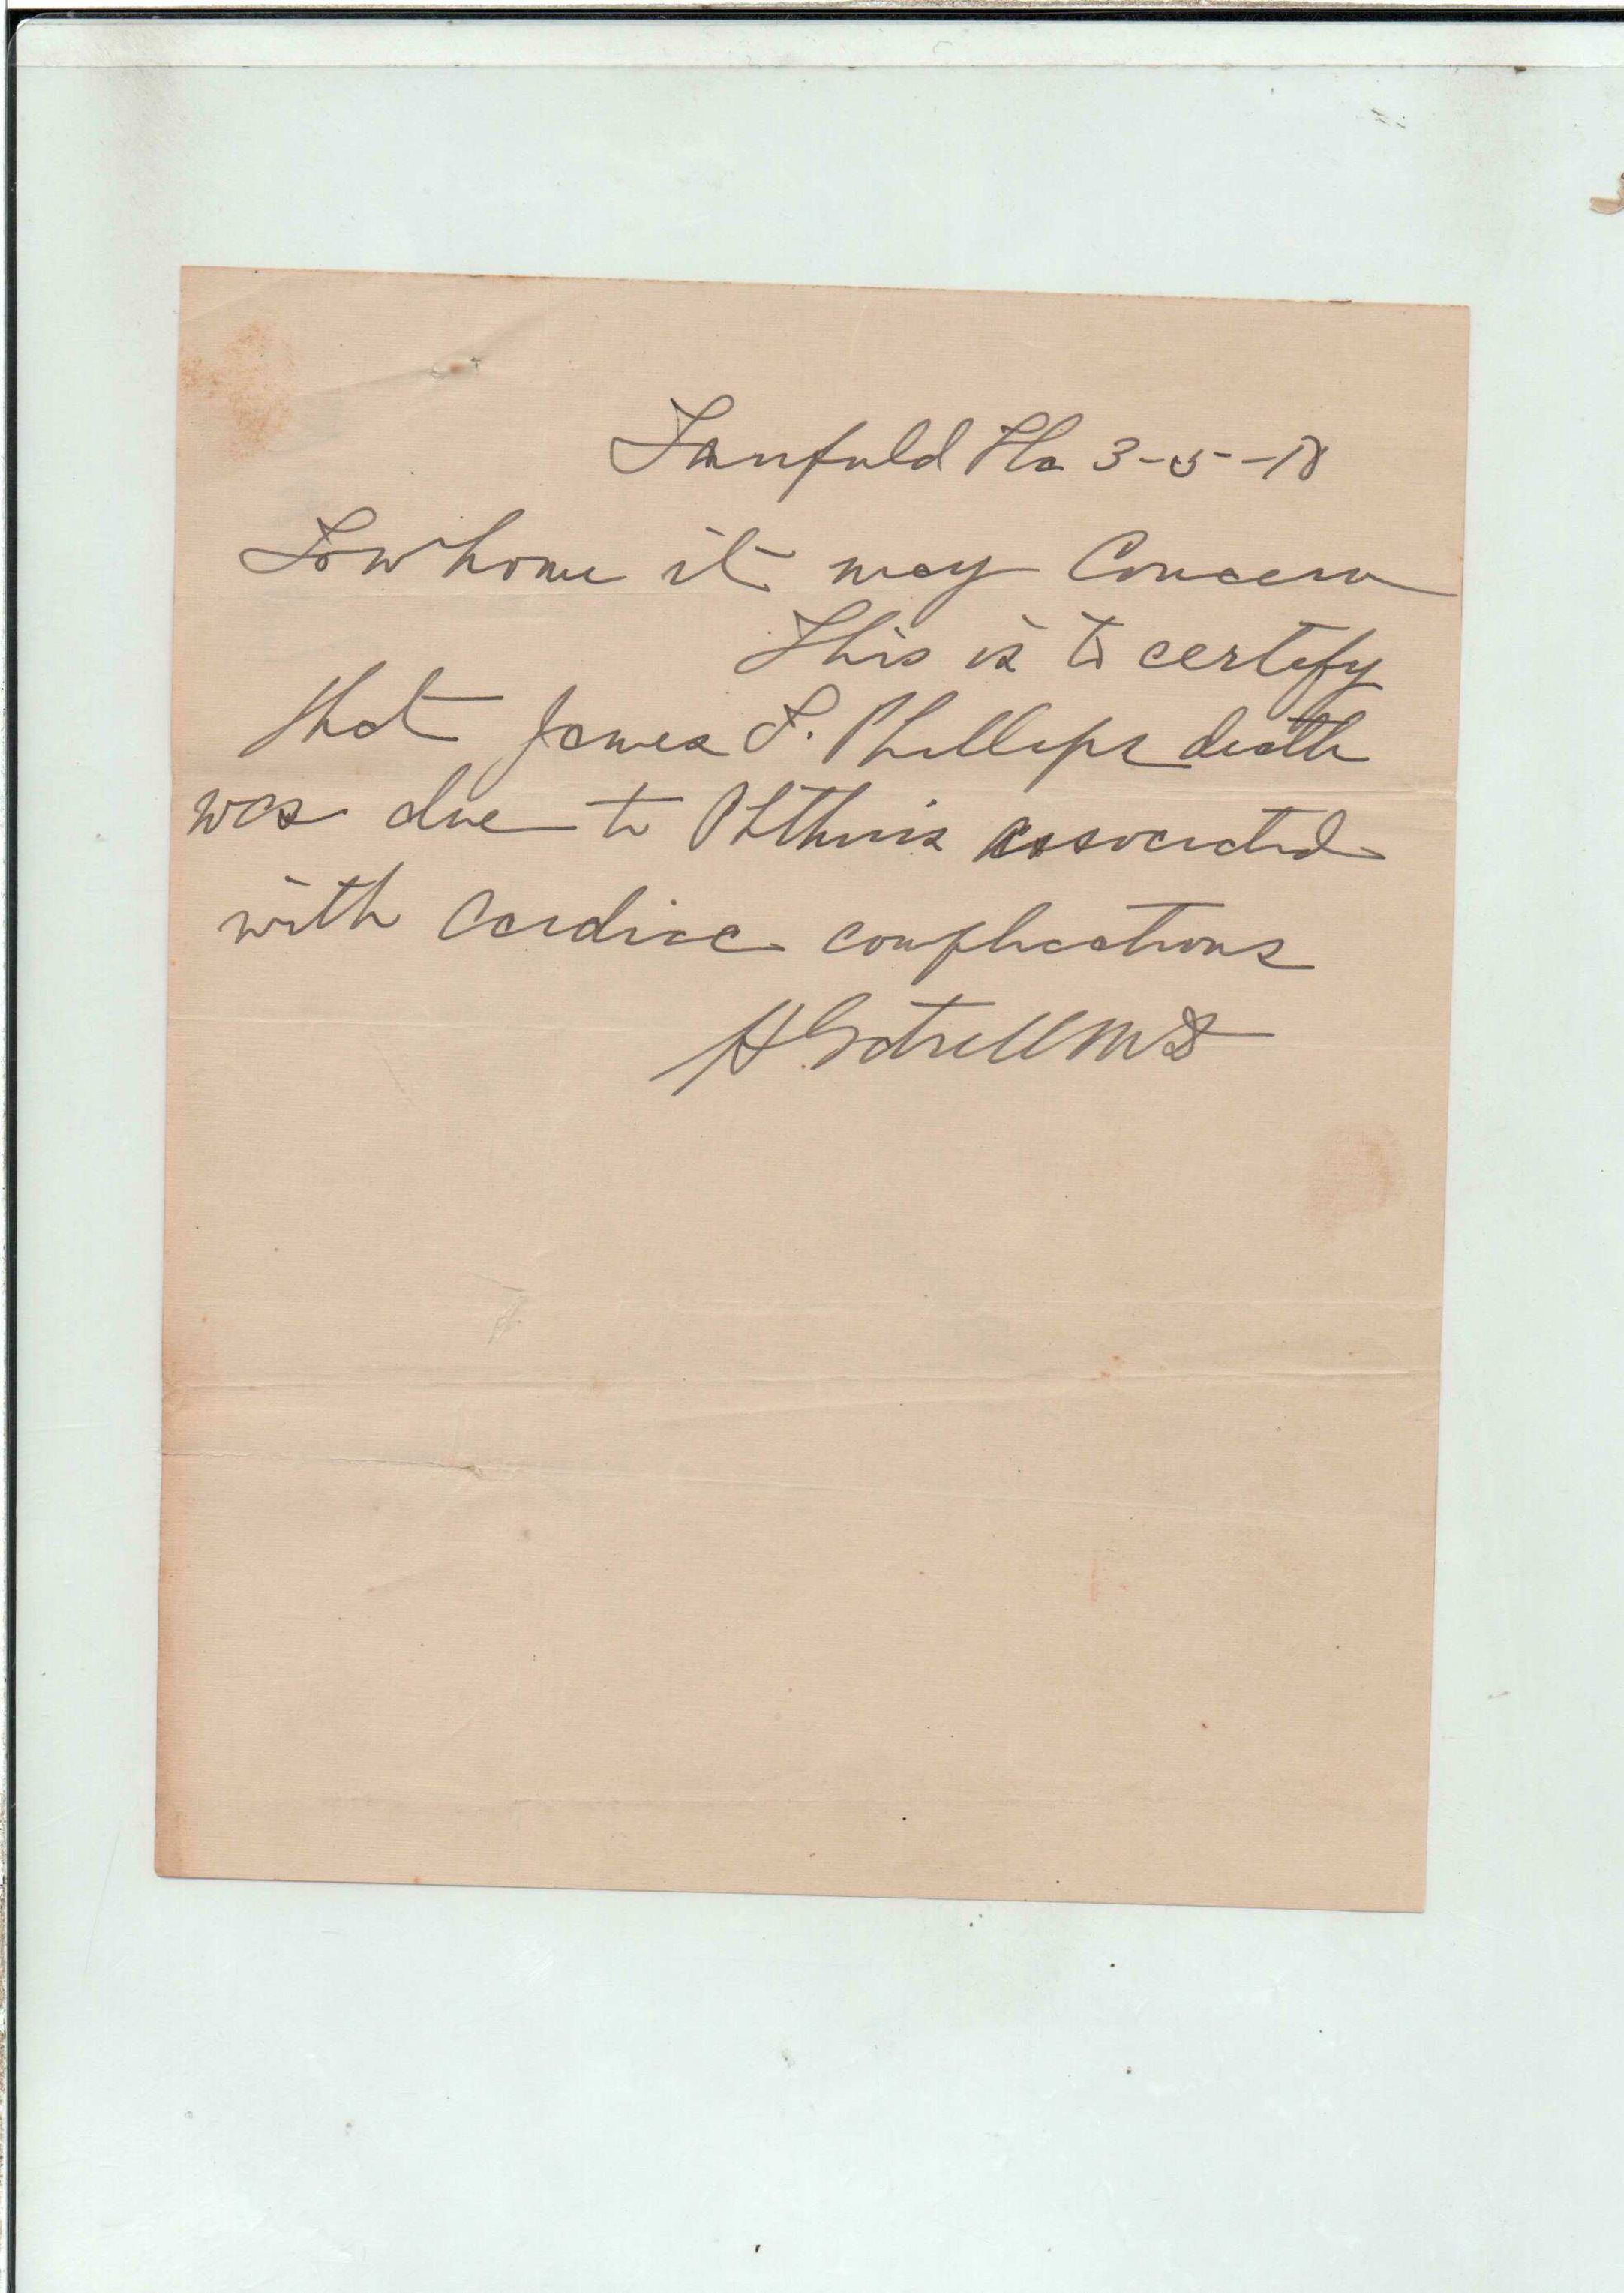 Sanford Fla 3-5-18
To whome it may Concern
This is to certify
that James F. Phillips death
was due to Phthisis associated
with Cardiac complications
H MD